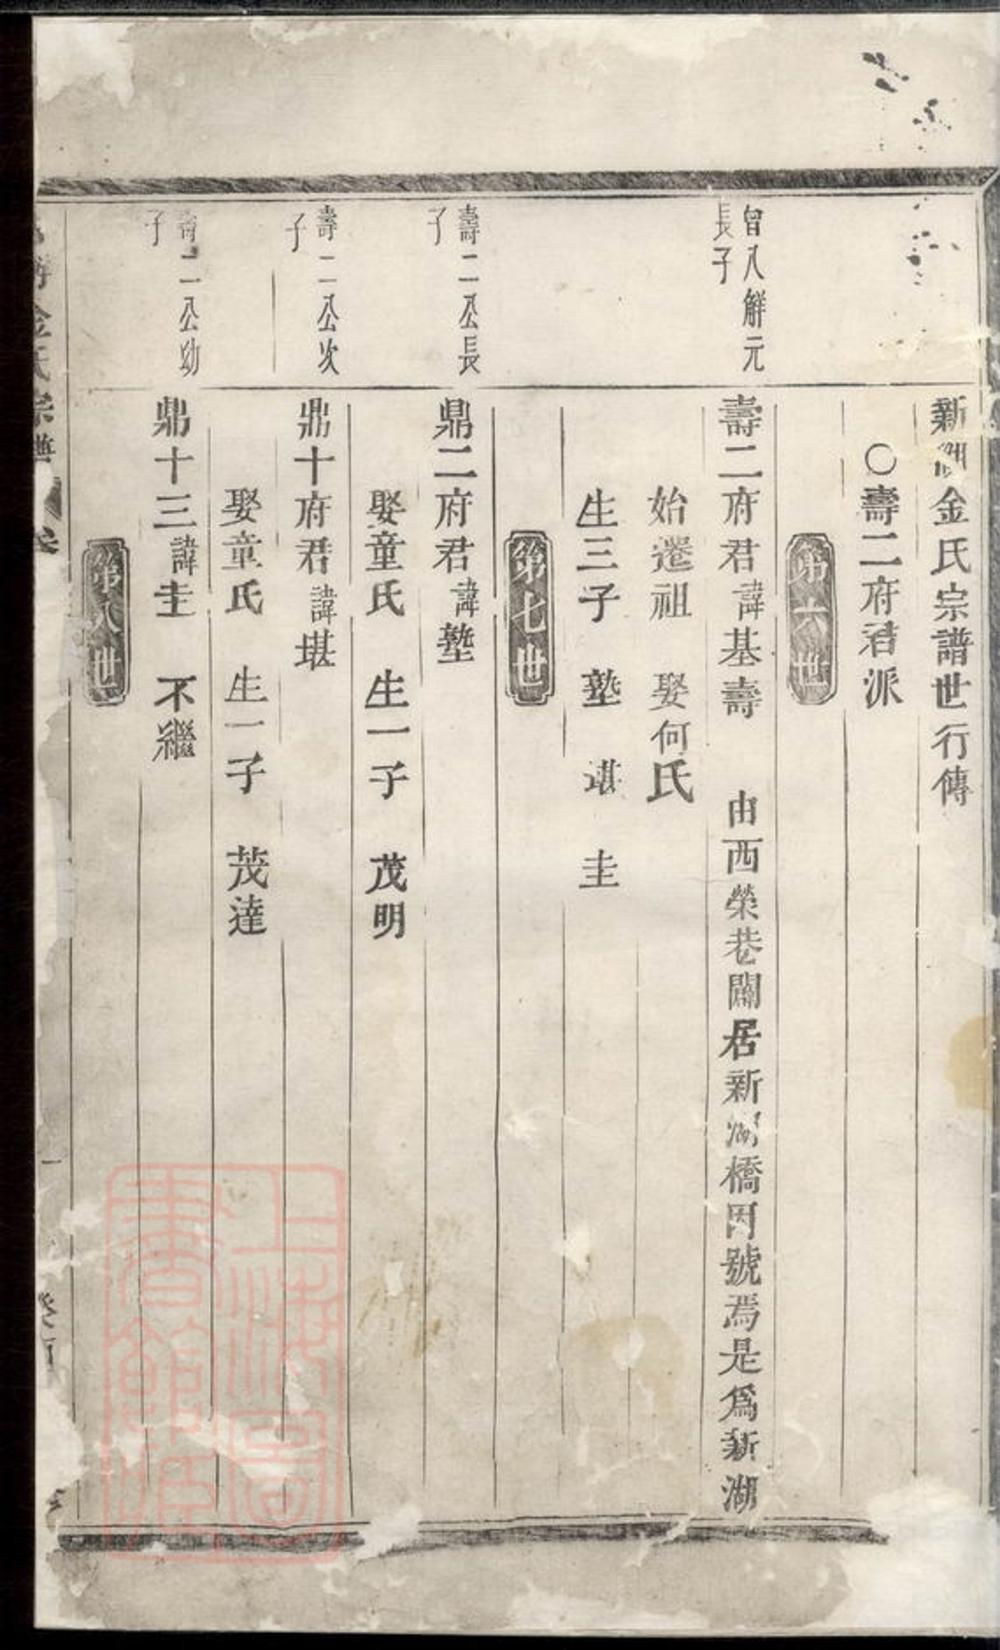 新湖金氏宗譜世行傳
○壽二府君派
第六世
曾八解元
長子
壽二府君諱基壽 由西榮巷闢居新湖橋因號焉是爲新湖
始遷祖 娶何氏
生三子 塾 堪 圭
第七世
壽二公長
子
鼎二府君諱塾
娶童氏 生一子 茂明
壽二公次
子
鼎十府君諱堪
娶童氏 生一子 茂達
壽二公幼
子
鼎十三諱圭 不繼
第八世
金氏宗譜 卷
一
癸酉
上海圖書館藏